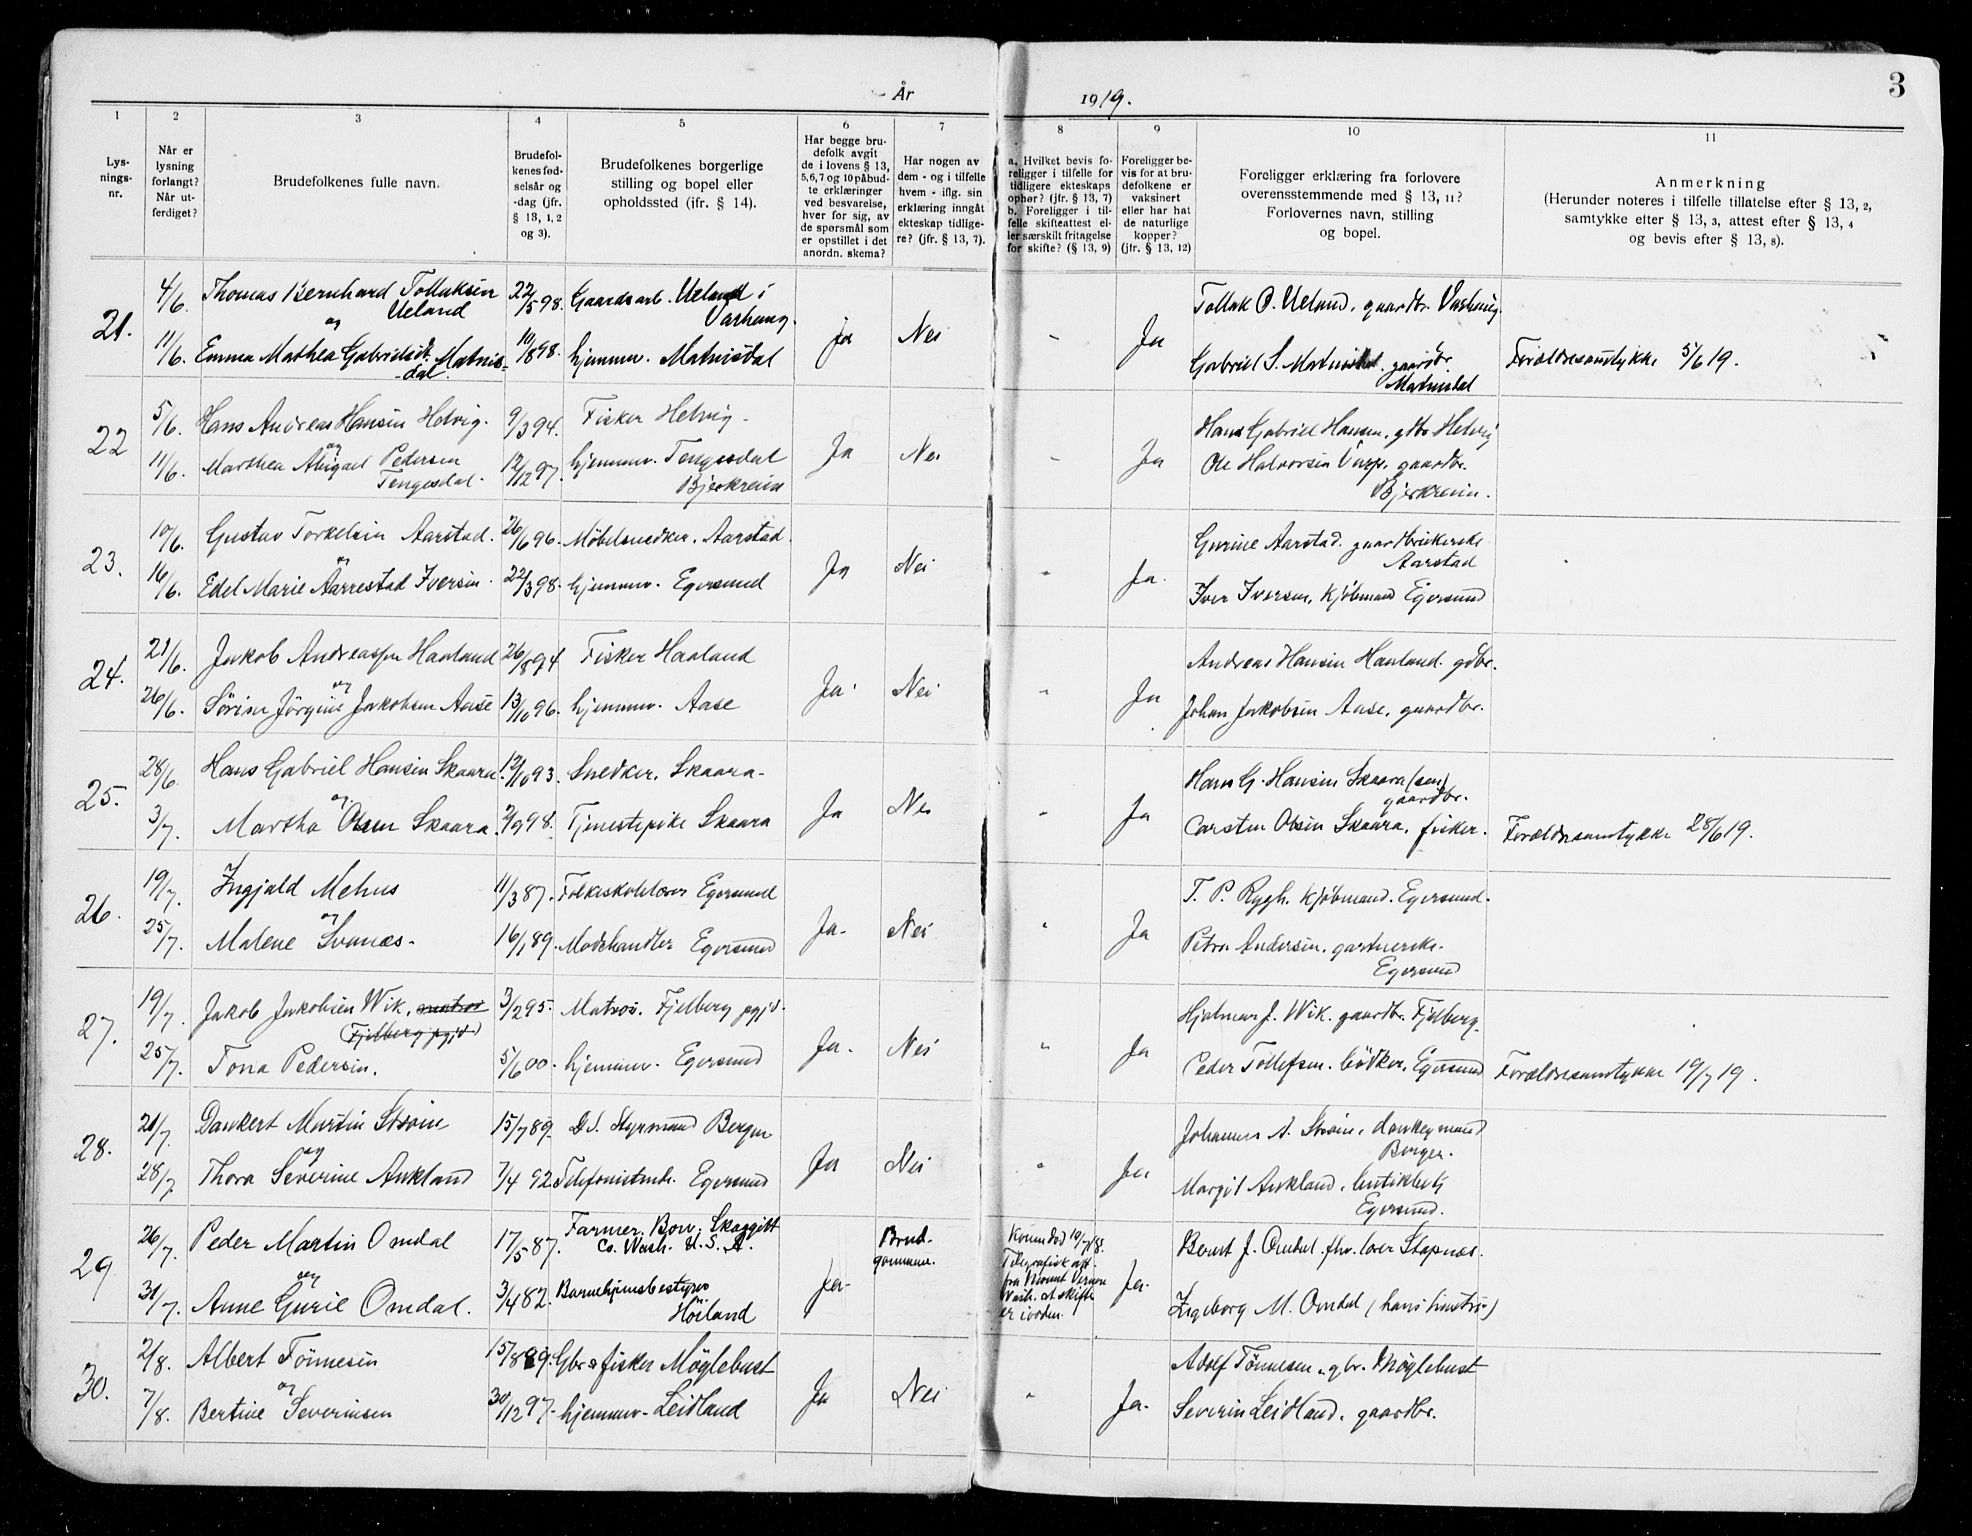 År 1919.
3
1 2 3 4 5 6 7 8 9 10 11
Lysningsnr.
Når er lysning forlangt? Når utferdiget?
Brudefolkenes fulle navn.
Brudefolkenes fødselsår og -dag (jfr. § 13, 1, 2 og 3).
Brudefolkenes borgerlige stilling og bopel eller opholdssted (ifr. § 14).
Har begge brudefolk avgit de i lovens § 13, 5, 6, 7 og 10 påbudte erklæringer ved besvarelse, hver for sig, av de spørsmål som er opstillet i det anordn. skema?
Har nogen av dem - og i tilfelle hvem - iflg. sin erklæring inngåt ekteskap tidligere? (jfr. § 13, 7).
a. Hvilket bevis foreligger i tilfelle for tidligere ekteskaps ophør? (jfr. § 13, 7) b. Foreligger i tilfelle skifteattest eller særskilt fritagelse for skifte? (§ 13, 9)
Foreligger bevis for at brudefolkene er vaksinert eller har hat de naturlige kopper? (jfr. § 13, 12)
Foreligger erklæring fra forlovere overensstemmende med § 13, 11? Forlovernes navn, stilling og bopel.
Anmerkning (Herunder noteres i tilfelle tillatelse efter § 13, 2, samtykke efter § 13, 3, attest efter § 13, 4 og bevis efter § 13, 8).
21. 4/6. Thomas Bernhard Tollaksen Ueland 22/5 98. Gaardsarb. Ueland i Varhaug. Ja Nei " Ja Tollak O. Ueland, gaardbr. Varhaug.
og
11/6. Emma Mathea Gabrielsdt. Matnisdal. 10/8 98. hjemmev. Matnisdal Gabriel S. Matnisdal. gaardbr. Matnisdal Forældresamtykke 5/6 19.
22 5/6. Hans Andreas Hansen Helvig. 9/3 94. Fisker Helvig. Ja Nei " Ja Hans Gabriel Hansen, gdbr Helvig
og
11/6. Marthea Abigael Pedersen Tengesdal. 12/12 97. hjemmev. Tengesdal Bjerkreim Ole Halvorsen Vasp. gaardbr. Bjerkreim.
23. 10/6. Gustav Torkelsen Aarstad. 26/6 96. Møbelsnedker. Aarstad. Ja Nei " Ja. Gurine Aarstad. gaardbrukerske Aarstad
og
16/6. Edel Marie Aarrestad Iversen. 22/3 98. hjemmev. Egersund Iver Iversen, Kjøbmand Egersund
24. 21/6. Jakob Andreassen Haaland 26/8 94. Fisker Haaland Ja. Nei " Ja Andreas Hansen Haaland. gdbr.
og
26/6. Sørine Jørgine Jakobsen Aase 13/10 96. hjemmev. Aase Johan Jakobsen Aase, gaardbr.
25. 28/6. Hans Gabriel Hansen Skaara. 12/10 93. Snedker. Skaara. Ja Nei " Ja Hans G. Hansen Skaara (sen) gaardbr.
og
3/7. Martha Olsen Skaara. 2/9 98. Tjenestepike Skaara Carsten Olsen Skaara, fisker. Forældresamtykke 28/6 19.
26. 19/7. Ingjald Mehus 11/3 87. Folkeskolelærer Egersund Ja. Nei " Ja T. P. Rygh. Kjøbmand. Egersund.
og
25/7. Malene Svanæs. 16/1 89. Motehandler Egersund Petra Andersen, gartnerske. Egersund
27. 19/7. Jakob Jakobsen Wik, matros (Fjelberg pgjd) 3/2 95. Matros. Fjelberg pgjd. Ja. Nei " Ja Hjalmar J. Wik. gaardbr. Fjelberg.
25/7. Tona Pedersen. 5/6 00. hjemmev. Egersund Peder Tollefsen. bødker, Egersund Forældresamtykke 19/7 19.
28. 21/7. Dankert Martin Strøm 15/7 89. D.S. Styrmand Bergen Ja Nei " Ja Johannes A. Strøm, donkeymand Bergen.
og
28/7. Thora Severine Aukland 7/4 92 Telefonistinde. Egersund Margit Aukland, Egersund.
29. 26/7. Peder Martin Omdal 17/5 87. Farmer. Bow. Skaggitt Co. Wash. U. S. A. Ja. Brudgommen. Konen død 10/7 18. Telegrafisk att. fra Mount Vernon Wash. at skifte er i orden. Ja. Berent J. Omdal. fhv. lærer Stapnæs.
og
31/7. Anne Gurie Omdal. 3/4 82. Barnehjemsbestyrer Høiland Ingeborg M. Omdal (hans hustru)
30. 2/8. Albert Tønnesen 15/8 89. Gbr & fisker Møglebust Ja Nei " Ja. Adolf Tønnesen, gbr. Møglebust
og
7/8. Bertine Severinsen 30/12 97. hjemmev. Leidland Severin Leidland, gaardbr.